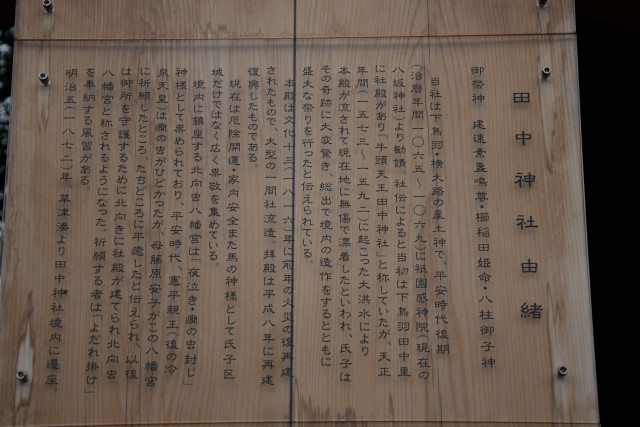 田中神社由緒
御祭神　建速素盞嗚尊・櫛稲田姫命・八柱御子神
当社は下鳥羽・横大路の産土神で、平安時代後期
(治暦年間一〇六五～一〇六九)に祇園感神院(現在の
八坂神社)より勧請。社伝によると当初は下鳥羽田中里
に社殿があり「牛頭天王田中神社」と称していたが、天正
年間(一五七三～一五九二)に起こった大洪水により
本殿が流されて現在地に無傷で漂着したといわれ、氏子は
その奇跡に大変驚き、総出で境内の造作をするとともに
盛大な祭りを行ったと伝えられている。
本殿は文化十三(一八一六)年に前年の火災の後再建
されたもので、大型の一間社流造。拝殿は平成八年に再建
復興したものである。
現在は厄除開運・家内安全また馬の神様として氏子区
域だけではなく広く崇敬を集めている。
境内に鎮座する北向吉八幡宮は「夜泣き・癇の虫封じ」
神様として崇められており、平安時代、憲平親王(後の冷
泉天皇)は癇の虫がひどかったが、母藤原安子がこの八幡宮
に祈願したところ、たちどころに平癒したと伝えられ、以後
は御所を守護するために北向きに社殿が建てられ北向吉
八幡宮と称されるようになった。祈願する者は「よだれ掛け」
を奉納する風習がある。
明治五(一八七二)年、草津湊より田中神社境内に遷座。